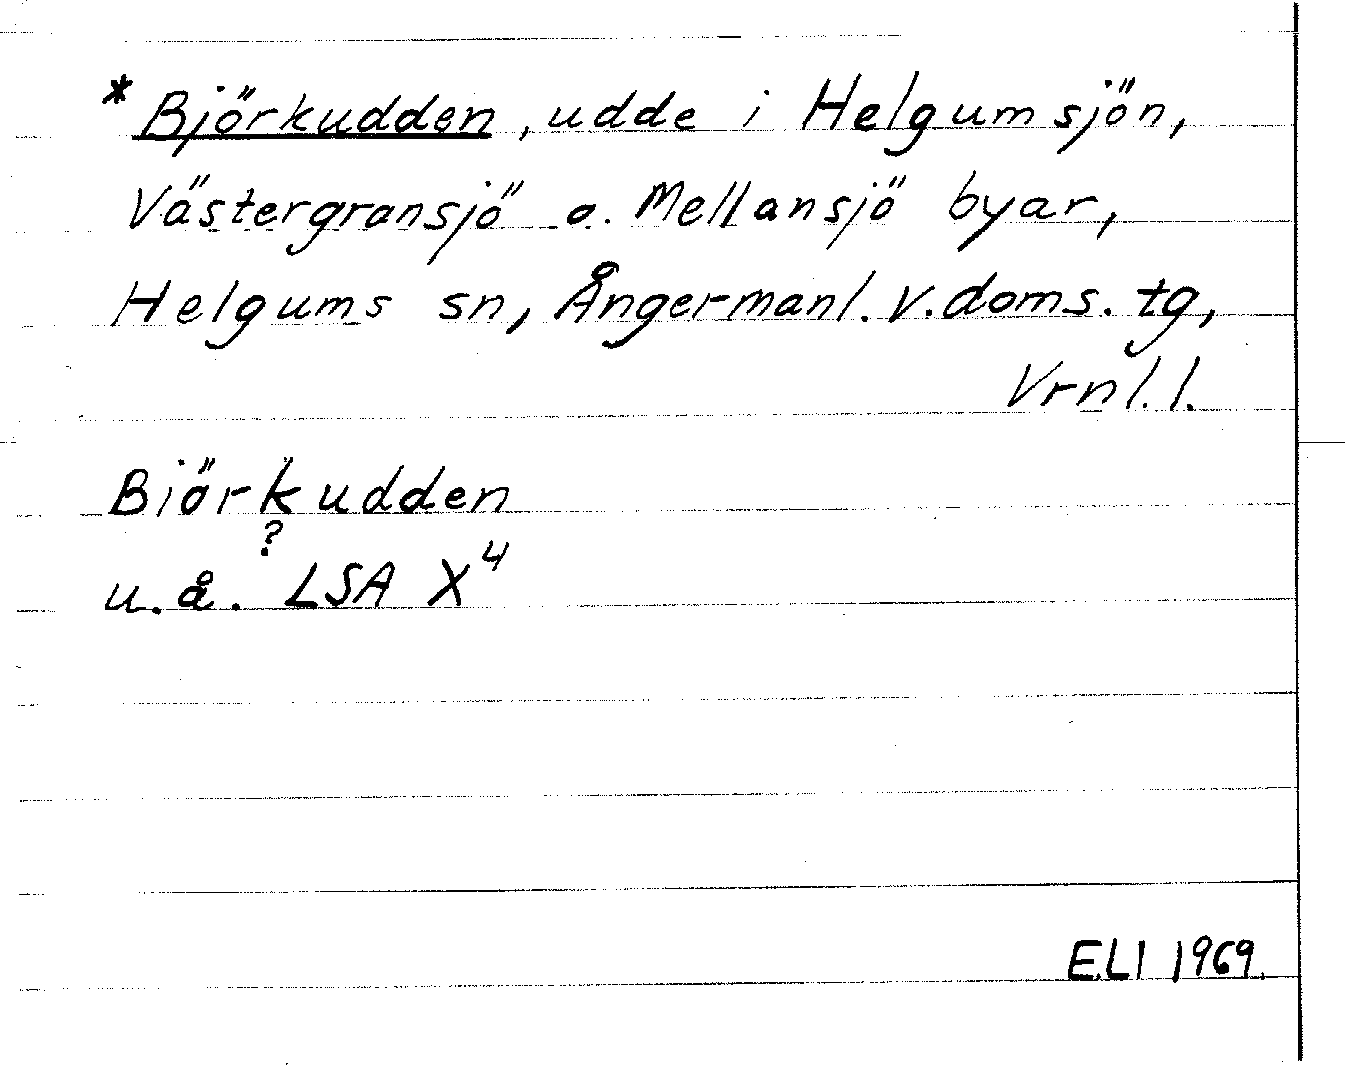 * Björkudden, udde i Helgumsjön,
Västergransjö o. Mellansjö byar,
Helgums sn, Ångermanl. v. doms. tg,
Vrnl. l.
Biörkudden
?
u.å. LSA X4
ELI 1969.